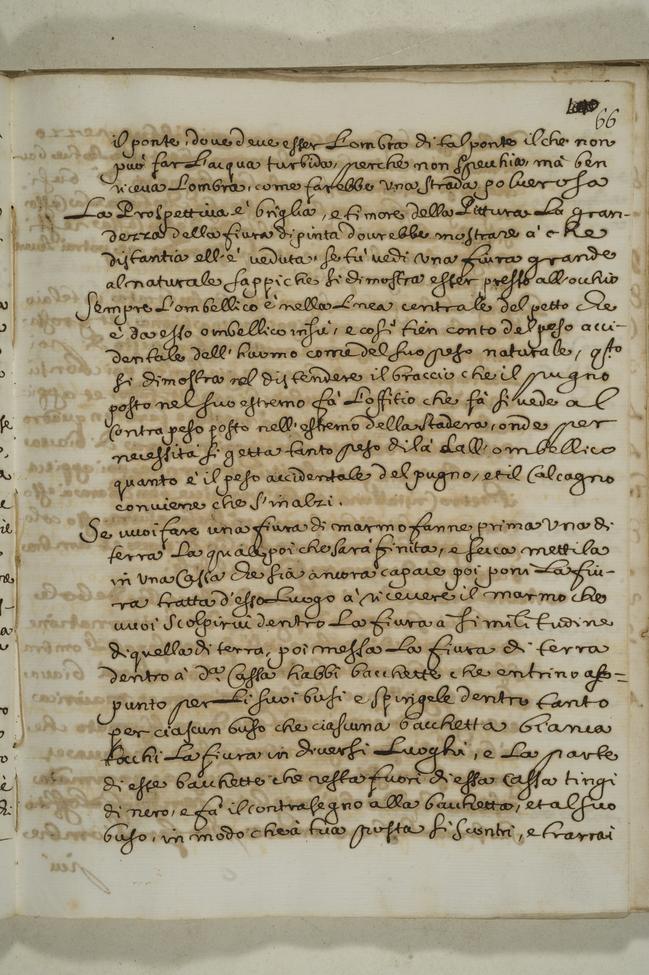 66
il ponte, dove deve esser L'ombra di tal ponte il che non
può far L'acqua turbida, perche non specchia, mà ben
riceva L'ombra, come farebbe una strada polverosa
La Prospettiva è briglia, e timore della Pittura La gran-
dezza della fiura dipinta dovrebbe mostrare à che
distantia ell'è veduta, se tù vedi una fiura grande
al naturale sappi che si dimostra esser presso all'occhio
Sempre L'ombellico è nella Linea centrale del petto che
è da esso ombellico insù, e così tien conto del peso acci-
dentale dell'huomo come del suo peso naturale, qsto
si dimostra nel distendere il braccio che il pugno
posto nel suo estremo fà L'offitio che fà si vede al
contrapeso posto nell'estremo della stadera, onde per
necessità si getta tanto peso di là dall'ombellico
quanto è il peso accidentale del pugno, et il calcagno
conviene che s'inalzi.
Se vuoi fare una fiura di marmo fanne prima una di
terra La quale poi che sarà finita, e secca mettila
in una Cassa che sia ancora capace poi poni La fiu-
ra tratta d'esso Luogo à ricevere il marmo che
vuoi scolpirvi dentro La fiura a similitudine
di quella di terra, poi messa La fiura di terra
dentro à da Cassa habbi bacchette che entrino ap=
punto per Li suoi busi e spingele dentro tanto
per ciascun buso che ciascuna bacchetta bianca
tochi La fiura in diversi Luoghi, e La parte
di esse bacchette che resta fuori di essa Cassa tingi
di nero, e fa il contrasegno alla bacchetta, et al suo
buso, in modo che à tua posta si scontri, e trarrai